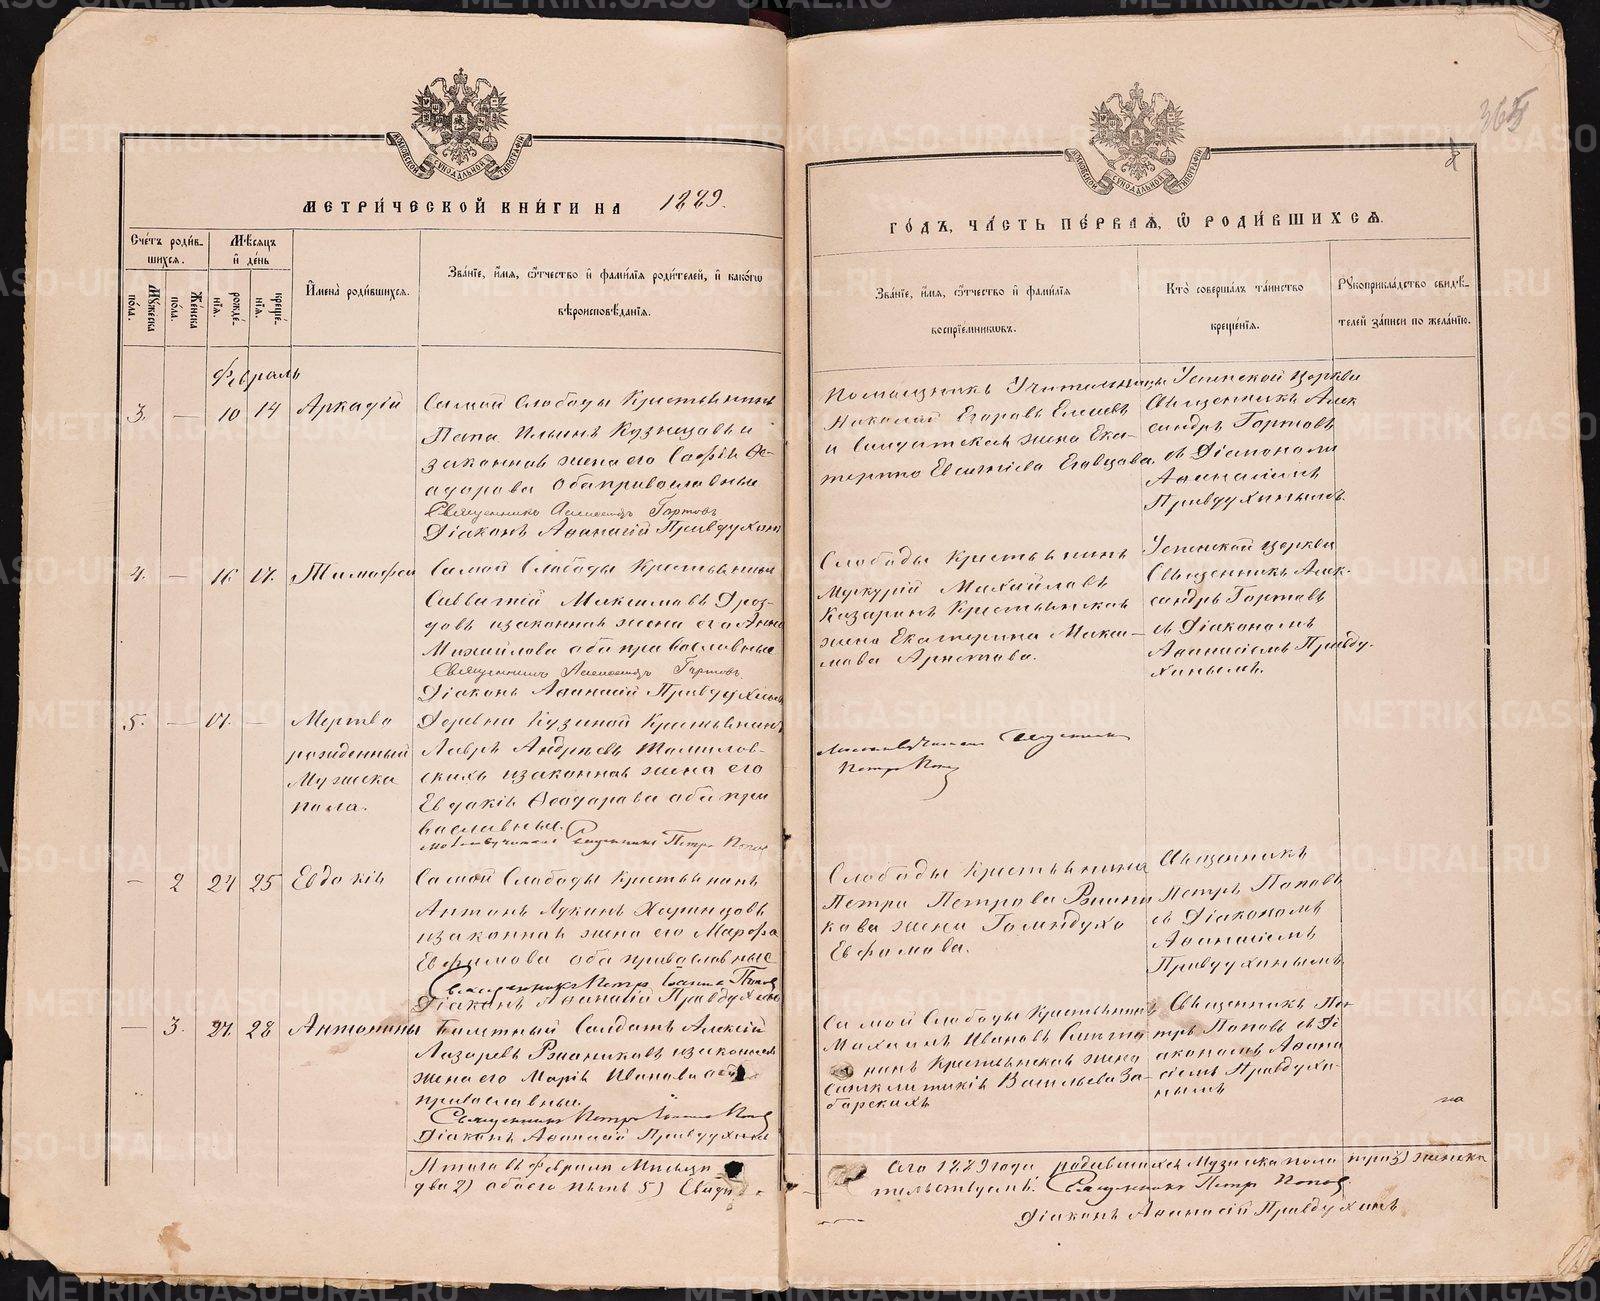 МЕТРИ́ЧЕСКОЙ КНИ́ГИ НА 1889.
Сче́тъ роди́в-
шихся.
Мѣ́сяцъ
и҆ де́нь
Мꙋ́жеска
по́ла.
Же́нска
по́ла.
рожде́-
нїѧ.
креще́-
нїѧ.
И҆мена̀ роди́вшихся.
Зва́нїе, и҆́мѧ, ѻ҆́тчество и҆ фами́лїѧ роди́телей, и҆ како́гѡ
вѣроисповѣ́данїѧ.
Февраль
3. — 10 14 Аркадій
Самой Слободы Крестьянинъ
Ильинъ Кузнецовъ и
законная жена его Софія Ѳе-
одорова оба православные
Священникъ Александръ Гортовъ
Діаконъ Аѳанасій Правдухинъ
4. — 16 17. Тимофей
Самой Слободы Крестьянинъ
Савватій Максимовъ Дроз-
довъ и законная жена его Анна
Михайлова оба православные
Священникъ Александръ Гортовъ.
Діаконъ Аѳанасій Правдухинъ
5. — 17. — Мертво
рожденный
Мужска
пола.
Деревни Кузиной Крестьянинъ
Лавръ Андреевъ Томилов-
скихъ и законная жена его
Евдокія Ѳеодорова оба пра
вославные.
Священникъ Петръ Поповъ
— 2 24 25 Евдокія
Самой Слободы Крестьянинъ
Антонъ Лукинъ
и законная жена его Марфа
Евфимова оба православные
Священникъ Петръ Іоанновъ Поповъ
Діаконъ Аѳанасій Правдухинъ
— 3. 27. 28 Антонины
Билетный Солдатъ Алексій
Лазаревъ и законная
жена его Марія Иванова оба
православные.
Священникъ Петръ Іоанновъ Поповъ
Діаконъ Аѳанасій Правдухинъ
Итого въ Феврале Месяце
два 2) обоего пять 5) Свиде
365
ГО́ДЪ, ЧА́СТЬ ПЕ́РВАѦ, Ѡ҆ РОДИ́ВШИХСѦ.
Зва́нїе, и҆́мѧ, ѻ҆́тчество и҆ фами́лїѧ
воспрїе́мникѡвъ.
Кто̀ соверша́лъ та́инство
креще́нїѧ.
Рꙋкоприкла́дство свидѣ́-
телей за́писи по жела́нїю.
Помощникъ Учительницы
Николай Егоровъ Елисеевъ
и Солдатская жена Ека-
терина
Успенской Церкви
Священникъ Алек
сандръ Гортовъ
съ Діакономъ
Аѳанасіемъ
Правдухинымъ
Слободы Крестьянинъ
Меркурій Михайловъ
Казаринъ Крестьянская
жена Екатерина Макси-
мова
Успенской Церкви
Священникъ Алек-
сандръ Гортовъ
съ Діакономъ
Аѳанасіемъ Правду-
хинымъ.
Петръ Поповъ
Слободы Крестьянина
Петра Петрова
кова жена Голиндуха
Евфимова.
Священникъ
Петръ Поповъ
съ Діакономъ
Аѳанасіемъ
Правдухинымъ
Самой Слободы Крестьянинъ
Михаилъ Ивановъ
нинъ Крестьянская жена
Синклитикія Васильева За-
барскихъ
Священникъ Пе-
тръ Поповъ съ Ді
акономъ Аѳана
сіемъ Правдухи-
нымъ
сего 1889 года родившихся Мужска пола три 3) женска
тельствуемъ: Священникъ Петръ Поповъ
Діаконъ Аѳанасій Правдухинъ
METRIKI.GASO-URAL.RU